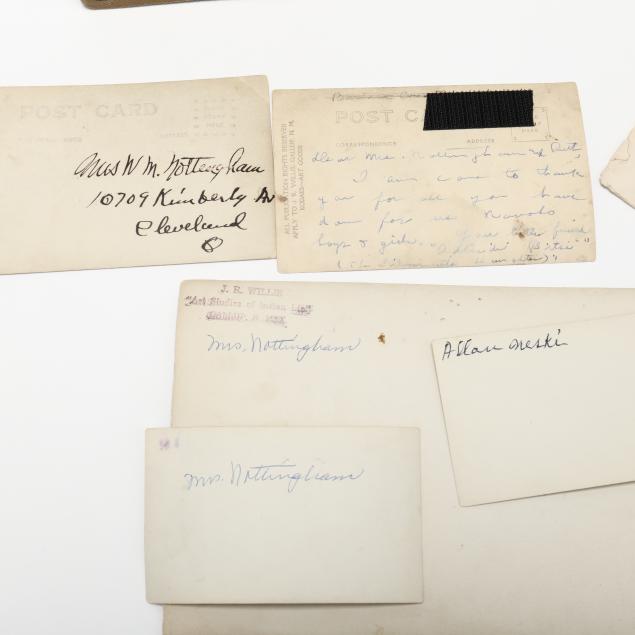 POST CARD
CORRESPONDENCE
ADDRESS
Mrs W M. Nottingham
10709 Kimberly Av
Cleveland
O
POST CARD
CORRESPONDENCE
ADDRESS
ALL PUBLICATION RIGHTS RESERVED
APPLY TO J. R. WILLIS, GALLUP, N. M.
KODAKS—ART GOODS
Dear Mrs. Nottingham
I am come to thank
you for all you have
done for us Navaho
boys & girls. Your little friend
J. R. WILLIS
"Art Studies of Indian Life"
GALLUP, N. MEX
Mrs. Nottingham
Allan
Mrs. Nottingham